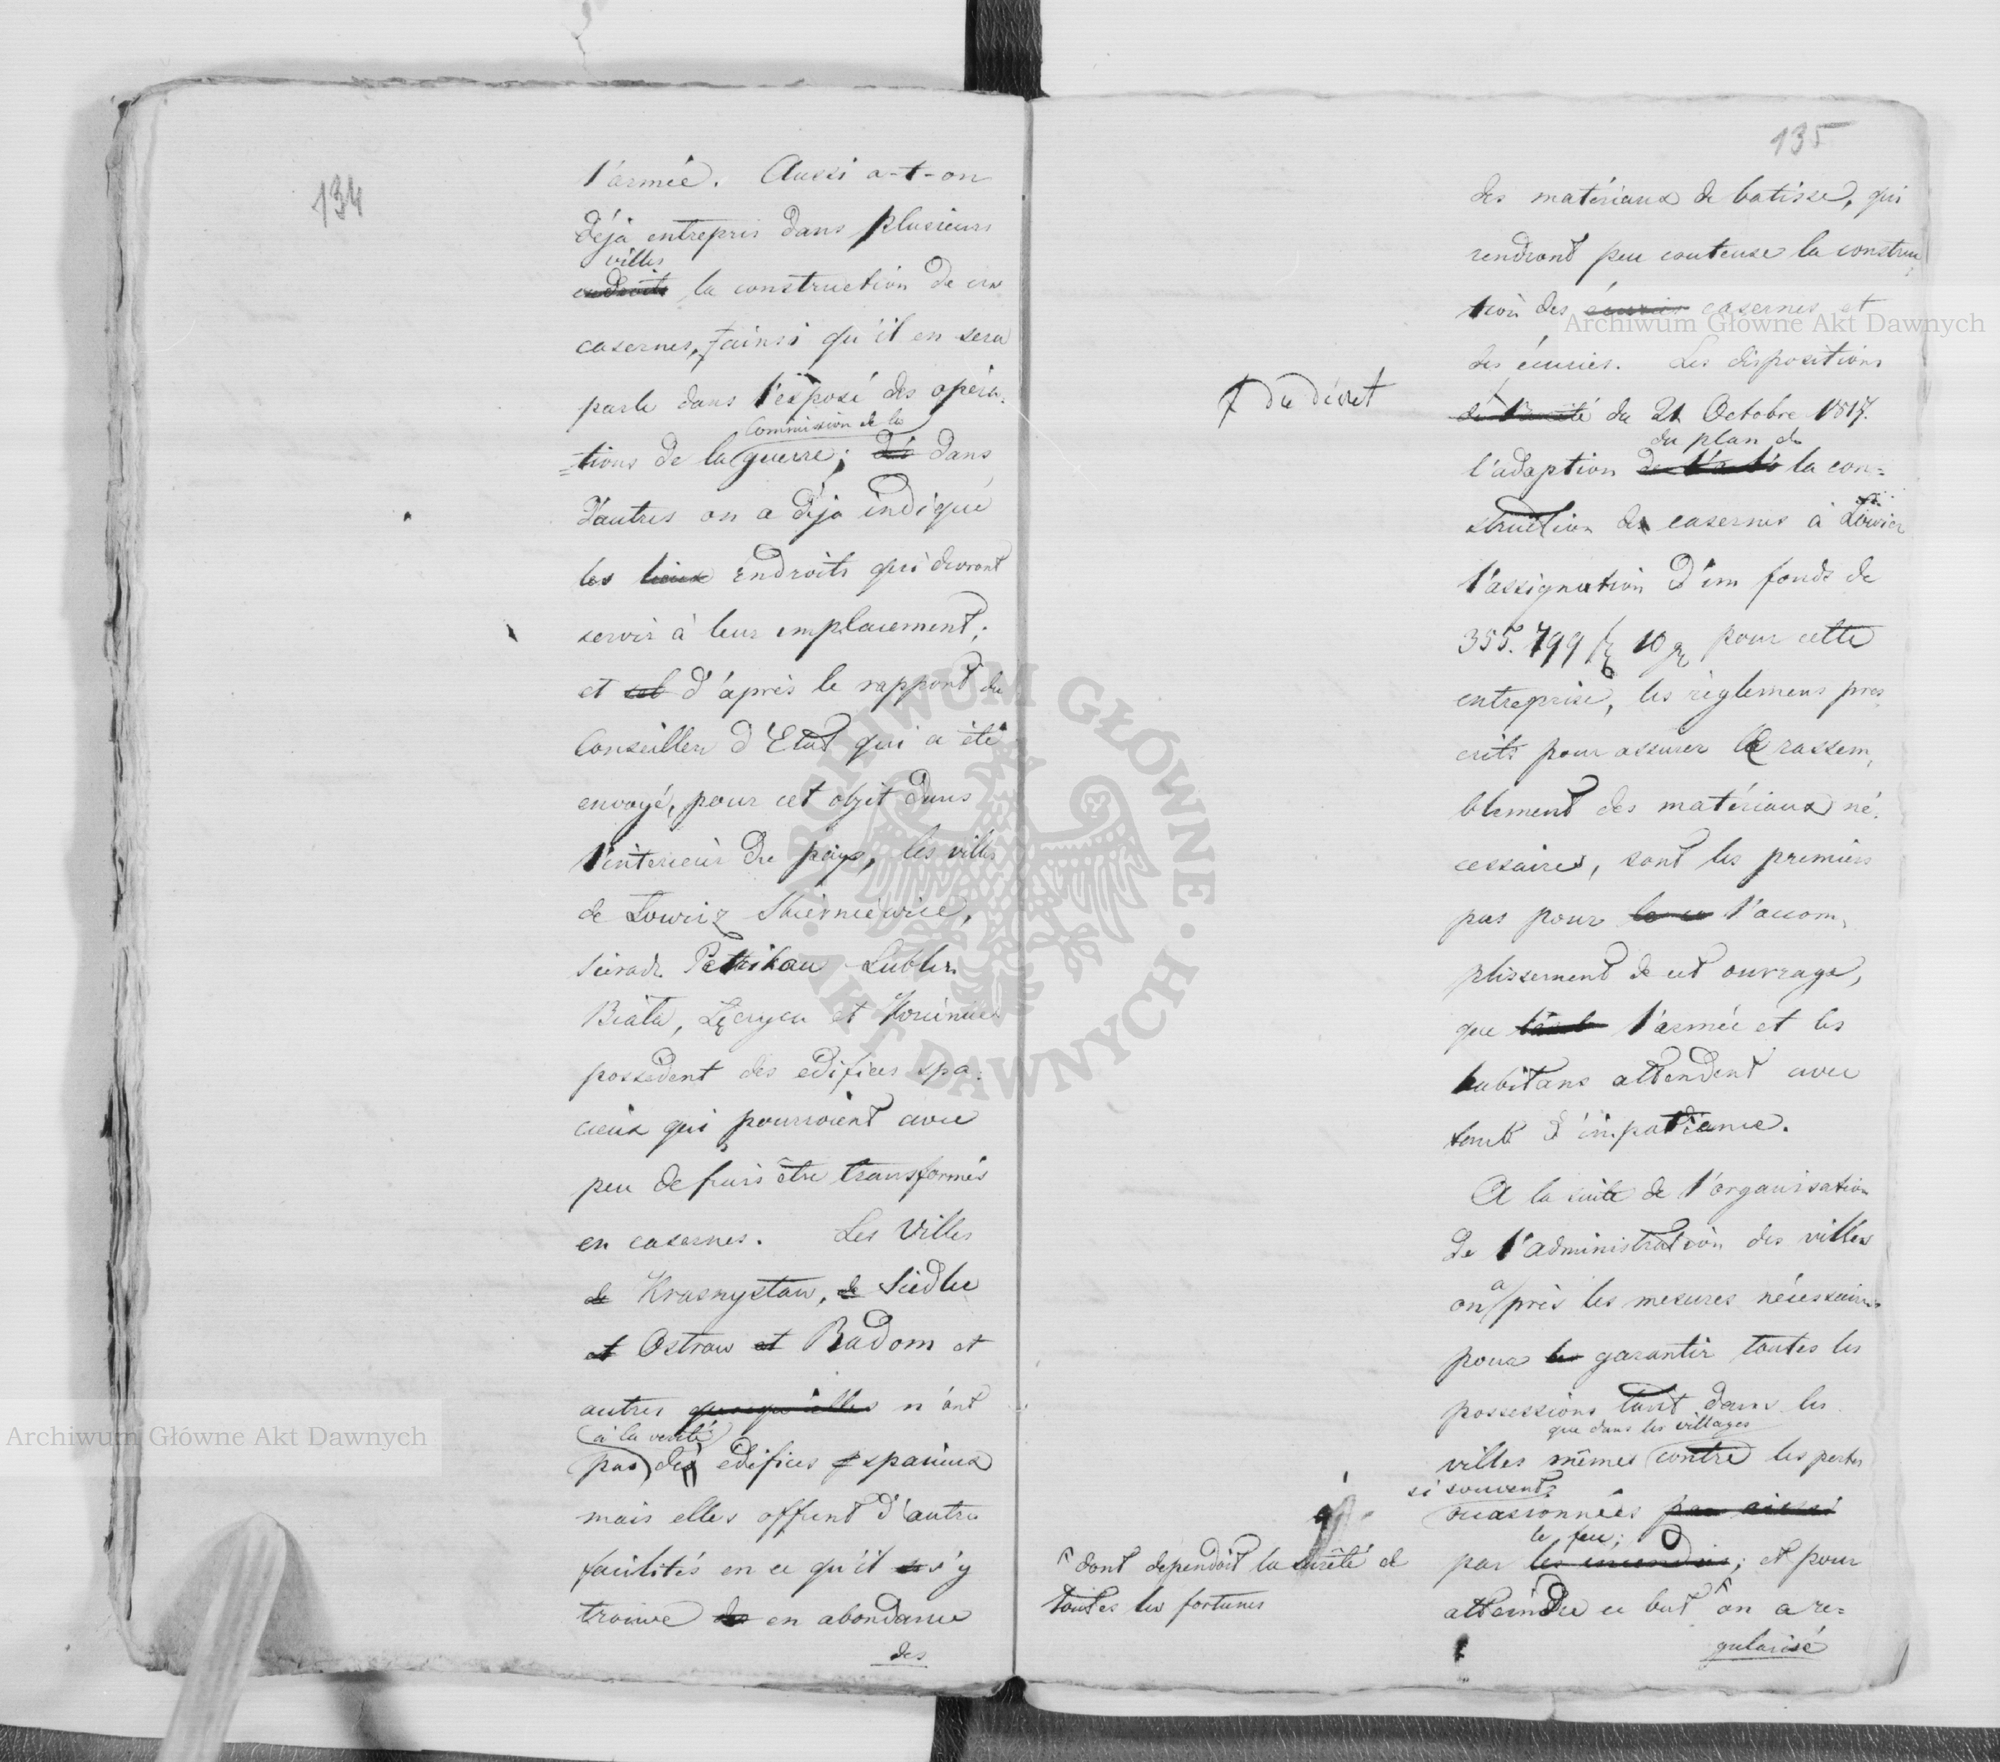 134
l'armée. Aussi a-t-on
déja entrepris dans plusieurs
villes
endroits la construction de ces
casernes, ainsi qu'il en sera
parlé dans l'exposé des opéra-
Commission de la
=tions de la guerre; dans
d'autres on a déja indiqué
les lieux endroits qui devront
servir à leur emplacement;
et d'après le rapport du
Conseiller d'Etat qui a été
envoyé, pour cet objet dans
l'interieur du pays, les villes
de Lowicz Skierniewice,
Sieradz Petrikau Lublin
Biała, Łęczyca et
possedent des edifices spa-
cieux qui pourroient avec
peu de frais être transformés
en casernes. Les Villes
de Krasnystaw, de Siedlce
et Ostrow et Radom et
autres quoiqu'elles n'ont
à la verité
pas des edifices spacieux
mais elles offrent d'autres
facilités en ce qu'il s'y
trouve des en abondance
des
135
des matériaux de batisse, qui
rendront peu couteuse la construc
tion des écuries casernes et
des écuries. Les dispositions
du décret
du 21 Octobre 1817.
du plan de
l'adaption la con=
struction des casernes à Lowicz
l'assignation d'un fonds de
355.799 fl 10 gr pour cette
entreprise, les règlemens pres
crits pour assurer le rassem,
blement des matériaux né,
cessaires, sont les premiers
pas pour l'accom,
plissement de cet ouvrage,
que l'armée et les
habitans attendent avec
tant d'impatience.
A la suite de l'organisation
de l'administration des villes
a
on pris les mesures nécessaires
pour les garantir toutes les
possessions tant dans les
que dans les villages
villes mêmes contre les pertes
si souvent
occasionnées par aussi
le feu;
par les incendies; et pour
dont dependoit la sureté de
toutes les fortunes
atteindre ce but on a re=
gularisé
Archiwum Główne Akt Dawnych
Archiwum Główne Akt Dawnych
ARCHIWUM GŁÓWNE · AKT DAWNYCH ·